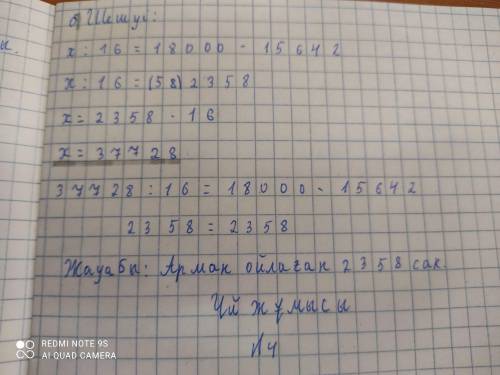 б) Шешуі:
x : 16 = 18000 - 15642
x : 16 = (58) 2358
x = 2358 · 16
x = 37728
37728 : 16 = 18000 - 15642
2358 = 2358
Жауабы: Арман ойлаған 2358 сан.
Үй жұмысы
№4
REDMI NOTE 9S
AI QUAD CAMERA